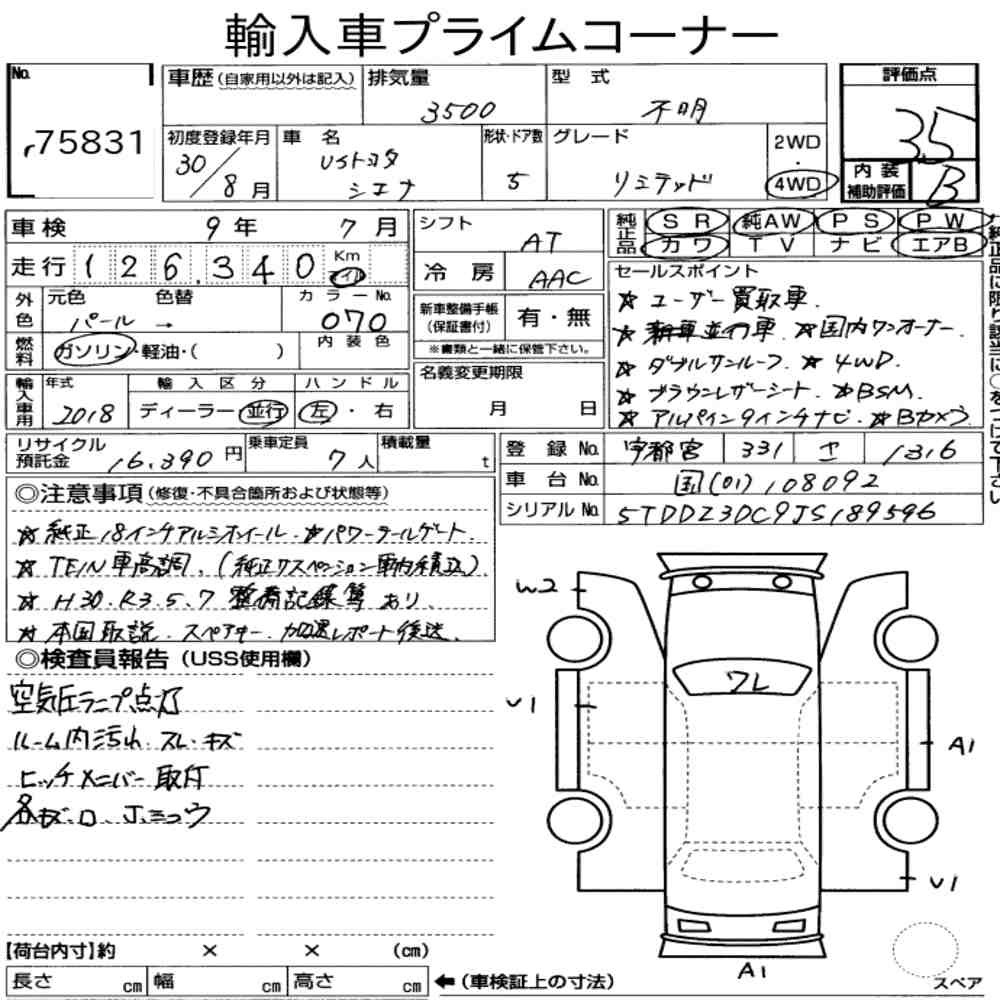 輸入車プライムコーナー
No. 75831
車歴(自家用以外は記入) 排気量 3500 型式 不明
評価点 3.5
初度登録年月 30/8月 車名 USトヨタ シエナ 形状・ドア数 5 グレード リミテッド 2WD・4WD
内装補助評価 B
車検 9年 7月
走行 126,340 Km マイル
外色 元色 パール 色替 → カラーNo. 070
内装色
燃料 ガソリン・軽油・( )
輸入車用 年式 2018 輸入区分 ディーラー・並行 ハンドル 左・右
シフト AT
冷房 AAC
新車整備手帳(保証書付) 有・無
※書類と一緒に保管下さい。
名義変更期限 月 日
純正品 SR 純AW PS PW
カワ TV ナビ エアB
セールスポイント
☆ ユーザー買取車.
☆ 新車並行車. ☆国内ワンオーナー.
☆ ダブルサンルーフ. ☆ 4WD.
☆ ブラウンレザーシート. ☆BSM.
☆ アルパイン9インチナビ. ☆Bカメラ.
リサイクル預託金 16,390円 乗車定員 7人 積載量 t
登録No. 宇都宮 331 サ 1316
車台No. 国(01)108092
シリアルNo. 5TDDZ3DC9JS189596
◎注意事項(修復・不具合箇所および状態等)
☆ 純正18インチアルミホイール. ☆パワーテールゲート.
☆ TEIN車高調. (純正サスペンション車内積込)
☆ H30.R3.5.7 整備記録簿 あり.
☆ 本国取説. スペアキー. 後送.
◎検査員報告(USS使用欄)
空気圧ランプ点灯
ルーム内汚れ.スレ.キズ
ヒッチメンバー取付
W2
ワレ
U1
A1
U1
A1
スペア
【荷台内寸】約 × × (cm)
長さ cm 幅 cm 高さ cm ←(車検証上の寸法)